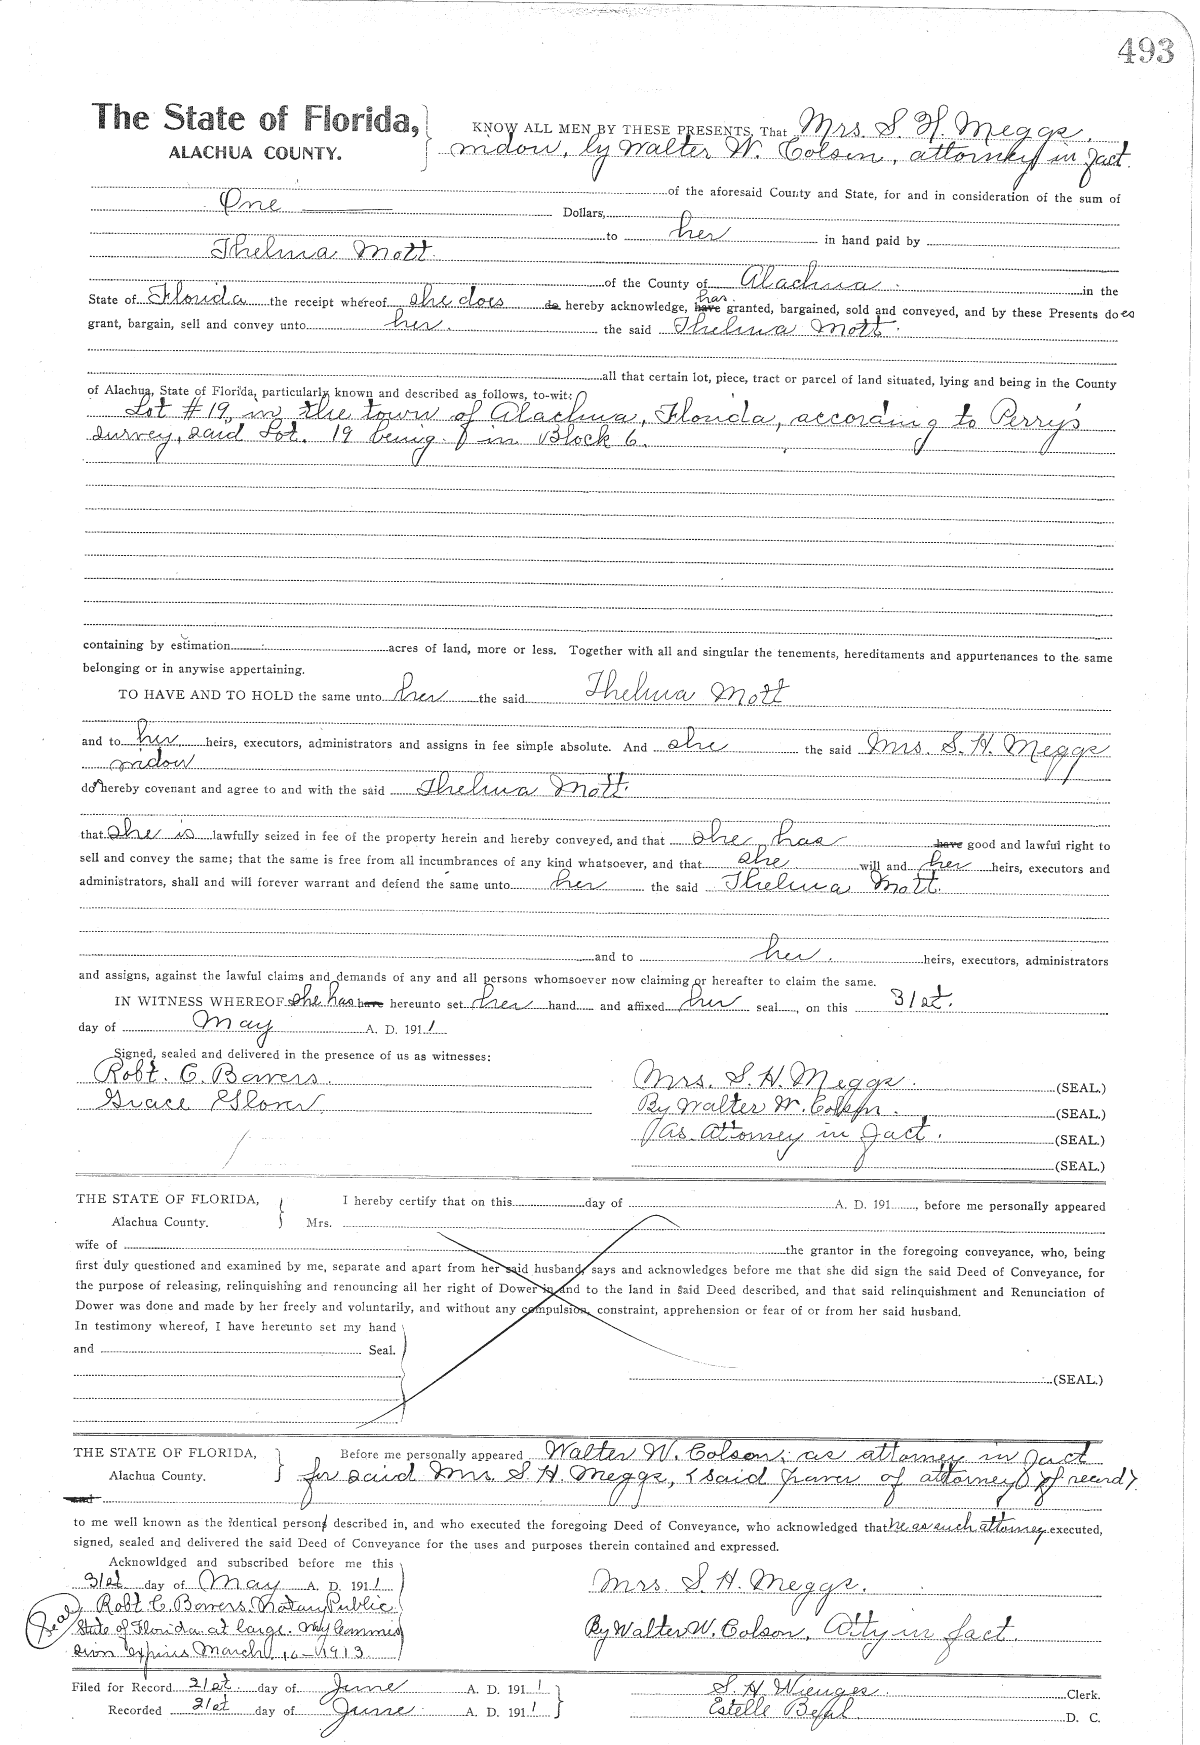 493
The State of Florida,
ALACHUA COUNTY.
KNOW ALL MEN BY THESE PRESENTS, That Mrs. S. H. Meggs,
widow, by Walter W. Colson, attorney in fact.
of the aforesaid County and State, for and in consideration of the sum of
One Dollars,
to her in hand paid by
Thelma Mott
of the County of Alachua in the
State of Florida the receipt whereof she does do hereby acknowledge, have has granted, bargained, sold and conveyed, and by these Presents does
grant, bargain, sell and convey unto her the said Thelma Mott.
all that certain lot, piece, tract or parcel of land situated, lying and being in the County
of Alachua, State of Florida, particularly known and described as follows, to-wit:
Lot #19, in the town of Alachua, Florida, according to Perry's
survey, said Lot. 19 being in Block 6.
containing by estimation acres of land, more or less. Together with all and singular the tenements, hereditaments and appurtenances to the same
belonging or in anywise appertaining.
TO HAVE AND TO HOLD the same unto her the said Thelma Mott
and to her heirs, executors, administrators and assigns in fee simple absolute. And she the said Mrs. S. H. Meggs
widow
do hereby covenant and agree to and with the said Thelma Mott.
that she is lawfully seized in fee of the property herein and hereby conveyed, and that she has have good and lawful right to
sell and convey the same; that the same is free from all incumbrances of any kind whatsoever, and that she will and her heirs, executors and
administrators, shall and will forever warrant and defend the same unto her the said Thelma Mott.
and to her. heirs, executors, administrators
and assigns, against the lawful claims and demands of any and all persons whomsoever now claiming or hereafter to claim the same.
IN WITNESS WHEREOF she has have hereunto set her hand and affixed her seal, on this 31st.
day of May A. D. 1911
Signed, sealed and delivered in the presence of us as witnesses:
Robt. C. Bowers. Mrs. S. H. Meggs. (SEAL.)
Grace Glover By Walter W. Colson. (SEAL.)
As Attorney in fact. (SEAL.)
(SEAL.)
THE STATE OF FLORIDA,
Alachua County.
I hereby certify that on this day of A. D. 191, before me personally appeared
Mrs.
wife of the grantor in the foregoing conveyance, who, being
first duly questioned and examined by me, separate and apart from her said husband, says and acknowledges before me that she did sign the said Deed of Conveyance, for
the purpose of releasing, relinquishing and renouncing all her right of Dower in and to the land in said Deed described, and that said relinquishment and Renunciation of
Dower was done and made by her freely and voluntarily, and without any compulsion, constraint, apprehension or fear of or from her said husband.
In testimony whereof, I have hereunto set my hand
and Seal.
(SEAL.)
THE STATE OF FLORIDA,
Alachua County.
Before me personally appeared Walter W. Colson, as attorney in fact
for said Mrs. S. H. Meggs, (said power of attorney of record)
and
to me well known as the identical person described in, and who executed the foregoing Deed of Conveyance, who acknowledged that he as such attorney executed,
signed, sealed and delivered the said Deed of Conveyance for the uses and purposes therein contained and expressed.
Acknowldged and subscribed before me this
31st day of May A. D. 1911 Mrs. S. H. Meggs.
Robt C. Bowers. Notary Public
Seal State of Florida at large. My Commis By Walter W. Colson, Atty in fact.
sion expires March 10-1913.
Filed for Record 21st. day of June A. D. 1911 S. H. Wienges. Clerk.
Recorded 21st day of June A. D. 1911 Estelle D. C.